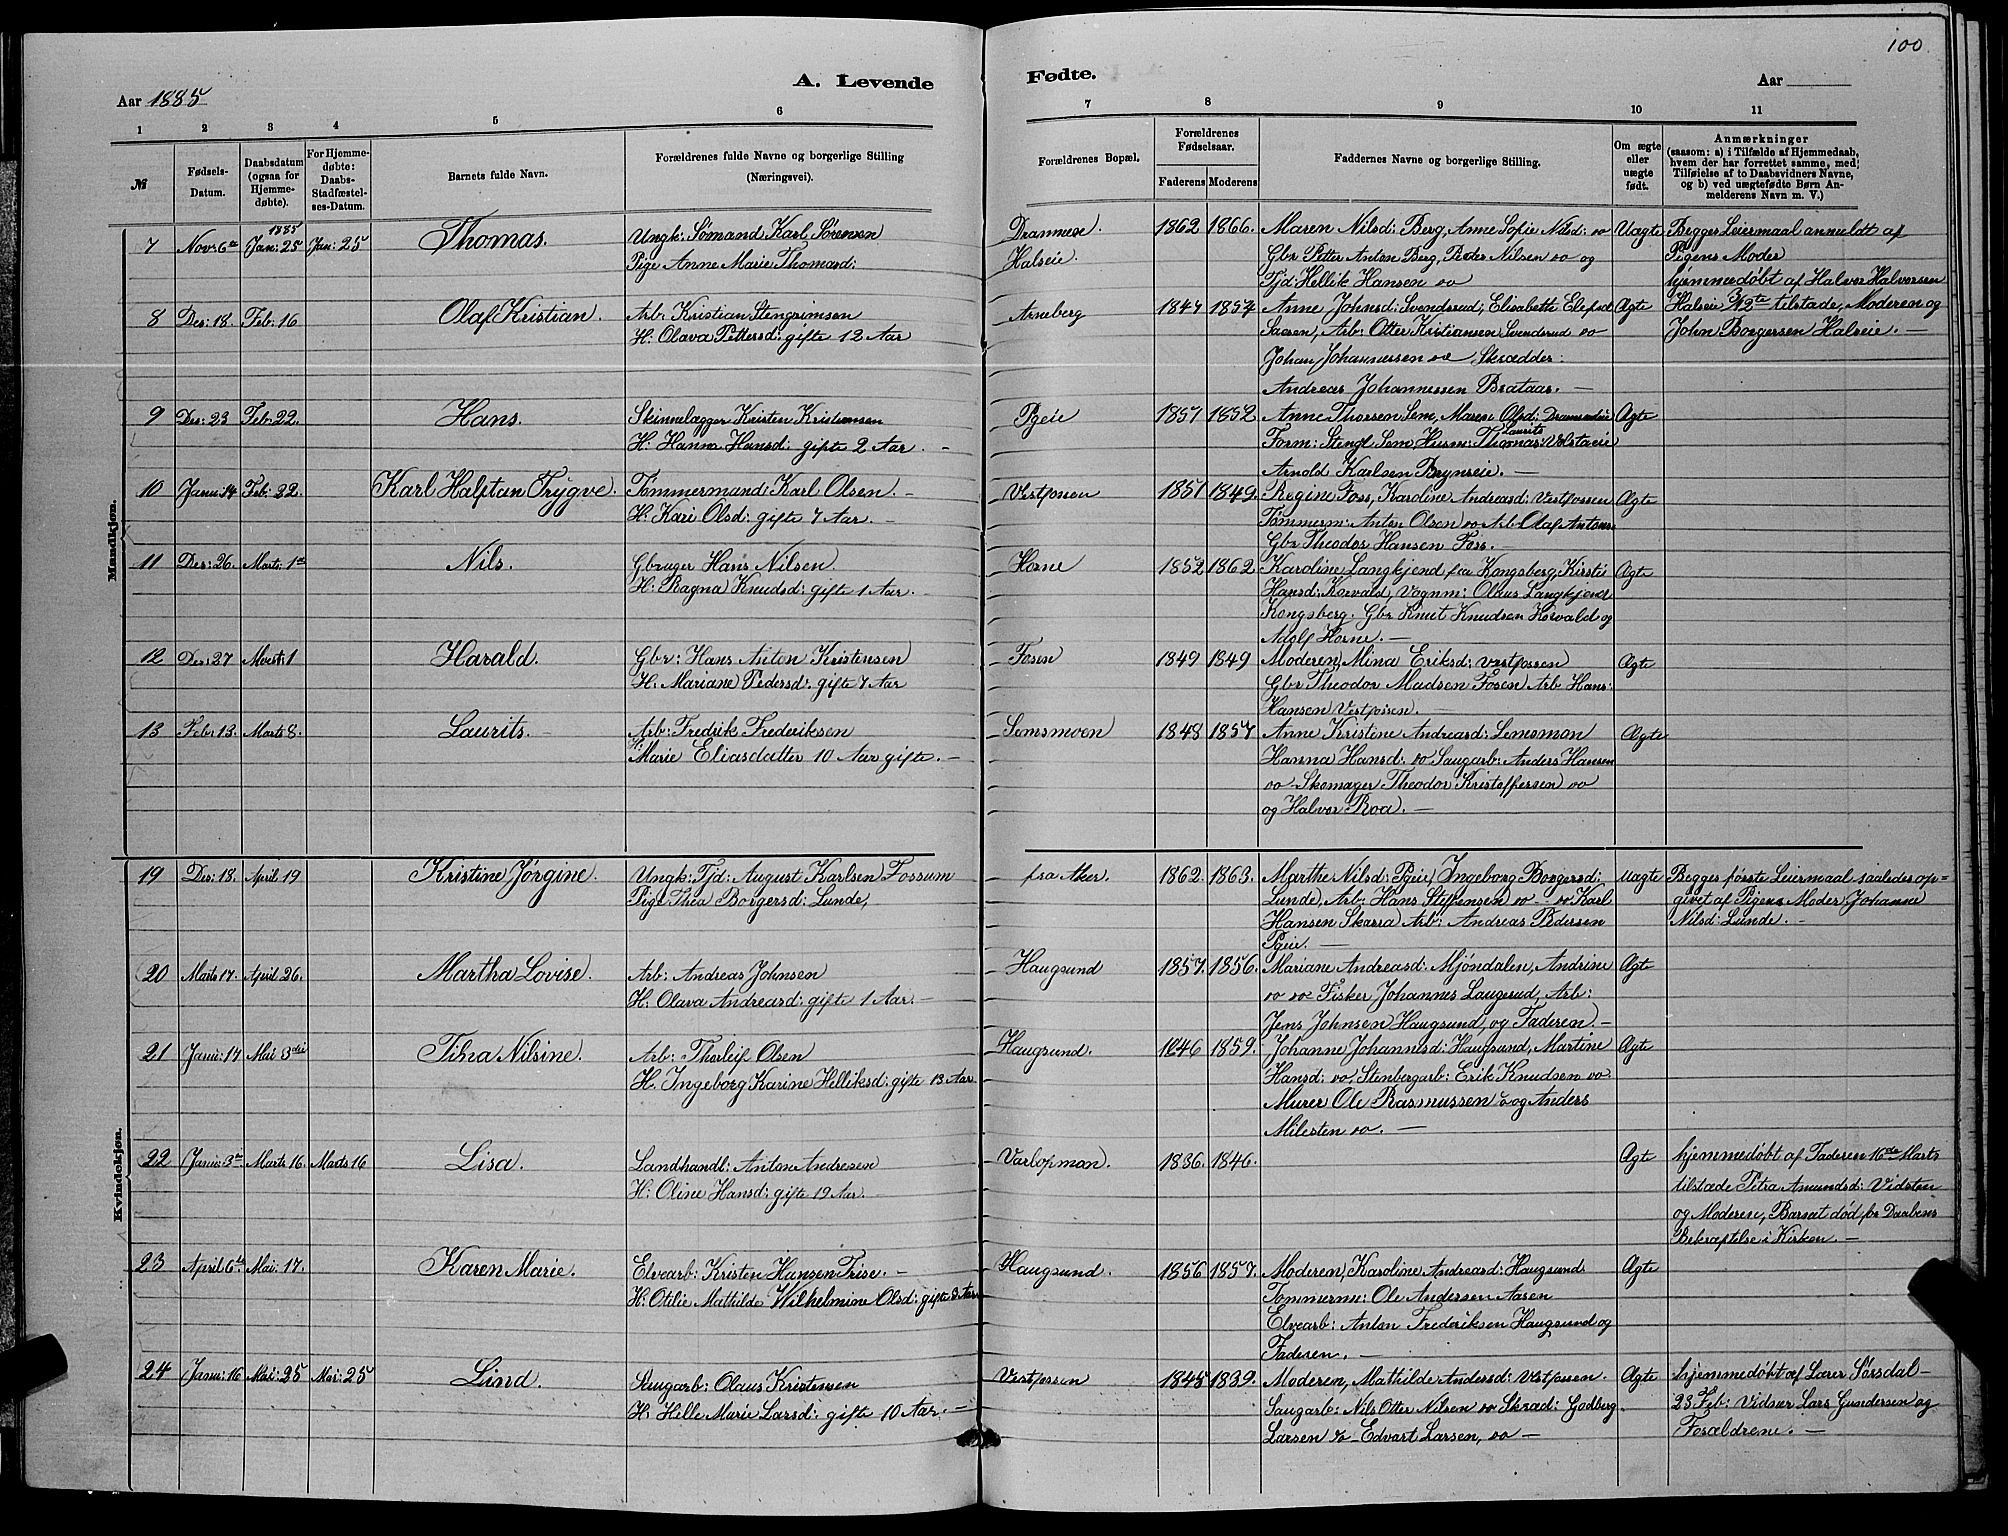 100
A. Levende Fødte.
Aar 1885
Aar
1 2 3 4 5 6 7 8 9 10 11
№
Fødsels-Datum.
Daabsdatum (ogsaa for Hjemmedøbte).
For Hjemmedøbte: Daabs-Stadfæstelses-Datum.
Barnets fulde Navn.
Forældrenes fulde Navne og borgerlige Stilling (Næringsvei).
Forældrenes Bopæl.
Forældrenes Fødselsaar.
Faderens Moderens
Faddernes Navne og borgerlige Stilling.
Om ægte eller uægte født.
Anmærkninger
(saasom: a) i Tilfælde af Hjemmedaab, hvem der har forrettet samme, med Tilføielse af to Daabsvidners Navne, og b) ved uægtefødte Børn Anmelderens Navn m. V.)
Mandkjøn.
7 Nov: 6te 1885 Jan: 25 Jan: 25 Thomas. Ungk: Sømand Karl Sørensen Drammen. 1862 1866. Maren Nilsd: Berg, Anne Sofie Nilsd: oo Uægte Begges Leiermaal anmeldt af
Pige Anne Marie Thomasd: Halseie. Gbr Petter Anton Berg, Peder Nilsen oo og Pigens Moder
Tjd Hellik Hansen oo hjemmedøbt af Halvor Halvorsen
8 Des: 18. Feb: 16 Olaf Kristian. Arb: Kristian Stengrimsen Arneberg 1847 1857 Anne Johnsd: Svendsrud, Elisabeth Ægte Halseie tilstade, Moderen og
H: Olava Pettersd: gifte 12 Aar Arb: Otter Kristiansen Svendsrud oo John Borgersen Halseie. —
Johan Johannessen oo Skrædder:
Andreas Johannessen Brataas. —
9 Des: 23 Feb: 22. Hans. Skinnelægger Kristen Kristensen Pgeie 1857 1852. Anne Thorsen Sem, Maren Olsd: Ægte
H: Hanna Hansd: gifte 2 Aar. — Form: Stengl Sem, Husm: Thomas Laurits
Arnold Karlsen Brynseie. —
10 Janu: 14 Feb: 22. Karl Halfdan Trygve. Tømmermand: Karl Olsen. — Vestfossen 1851 1849. Regine Foss, Karoline Andreasd: Vestfossen Ægte
H: Kari Olsd: gifte 7 Aar. — Tømmerm: Anton Olsen oo Arb Olaf Antons:
Gbr Theodor Hansen Foss. —
11 Des: 26. Marts: 1ste Nils. Gbruger Hans Nilsen Horne 1852 1862. Karoline Langkjend fra Kongsberg, Kirsti Ægte
H: Ragna Knudsd: gifte 1 Aar. Hansd: Korvald, Vognm: Olaus Langkjend
Kongsberg. Gbr Knut Knudsen Korvald og
Adolf Horne. —
12 Des: 27 Marts 1 Harald. Gbr: Hans Anton Kristensen Fosen 1849 1849 Moderen, Mina Eriksd: Vestfossen Ægte
H: Mariane Pedersd: gifte 7 Aar Gbr Theodor Madsen Fosen, Arb Hans
Hansen Vestfossen. —
13 Feb: 13. Marts 8. Laurits. — Arb: Fredrik Frederiksen Semsmoen 1848 1857 Anne Kristene Andreasd: Semsmon Ægte
H: Marie Eliasdatter 10 Aar gifte. — Hanna Hansd: oo Saugarb: Anders Hansen
oo Skomager Theodor Kristoffersen oo
og Halvor Roa. —
Kvindekjøn.
19 Des: 18. April 19 Kristine Jørgine. Ungk: Tjd: August Karlsen Fossum fra Aker. 1862. 1863. Marthe Nilsd: Pgeie, Ingeborg Borgersd: uægte Begges første Leiermaal saaledes op-
Pige Thea Borgersd: Lunde, Lunde, Arb: Hans Steffensen oo — oo Karl givet af Pigens Moder, Johanne
Hansen Skarra Arb: Andreas Pedersen Nilsd: Lunde. —
Pgeie. —
20 Marts 17. April 26. Martha Lovise. Arb: Andreas Johnsen Haugsund 1857. 1856. Mariane Andreasd: Mjøndalen, Andrine Ægte
H: Olava Andreasd: gifte 1 Aar. — oo oo Fisker Johannes Laugerud, Arb:
Jens Johnsen Haugsund, og Faderen. —
21 Janu: 17 Mai 3die Tina Nilsine. Arb: Thorleif Olsen Haugsund. 1846 1859. Johanne Johannesd: Haugsund, Martine Ægte
H. Ingeborg Karine Helliksd: gifte 13 Aar Hansd: oo, Stenbergarb: Erik Knudsen oo
Murer Ole Rasmussen oo og Anders
Milesten oo. —
22 Janu: 3de Marts 16. Marts 16 Lisa. Landhandl: Anton Andresen Varlopmon. 1836. 1846. Ægte hjemmedøbt af Faderen 16de Marts
H: Oline Hansd: gifte 19 Aar. — tilstæde Petra Amundsd: Vidsten
og Moderen, Barnet død før Daabens
Bekræftelse i Kirken. —
23 April 6te Mai: 17. Karen Marie. Elvearb: Kristen Hansen Trise. — Haugsund. 1856 1857. Moderen, Karoline Andreasd: Haugsund Ægte
H: Otilie Mathilde Wilhelmine Olsd: gifte 8 Aar Tømmerm: Ole Andersen Aasen
Elvearb: Anton Frederiksen Haugsund og
Faderen. —
24 Janu: 16 Mai: 25 Mai: 25 Lind. Saugarb: Olaus Kristensen Vestfossen 1845 1839. Moderen, Mathilde Andersd: Vestfossen. Ægte hjemmedøbt af Lærer Sørsdal —
H: Helle Marie Larsd: gifte 10 Aar. — Saugarb: Nils Otter Nilsen oo Skræd: Godberg 23 Feb: Vidner Lars Gundersen og
Larsen oo — Edvart Larsen, oo — Forældrene. —